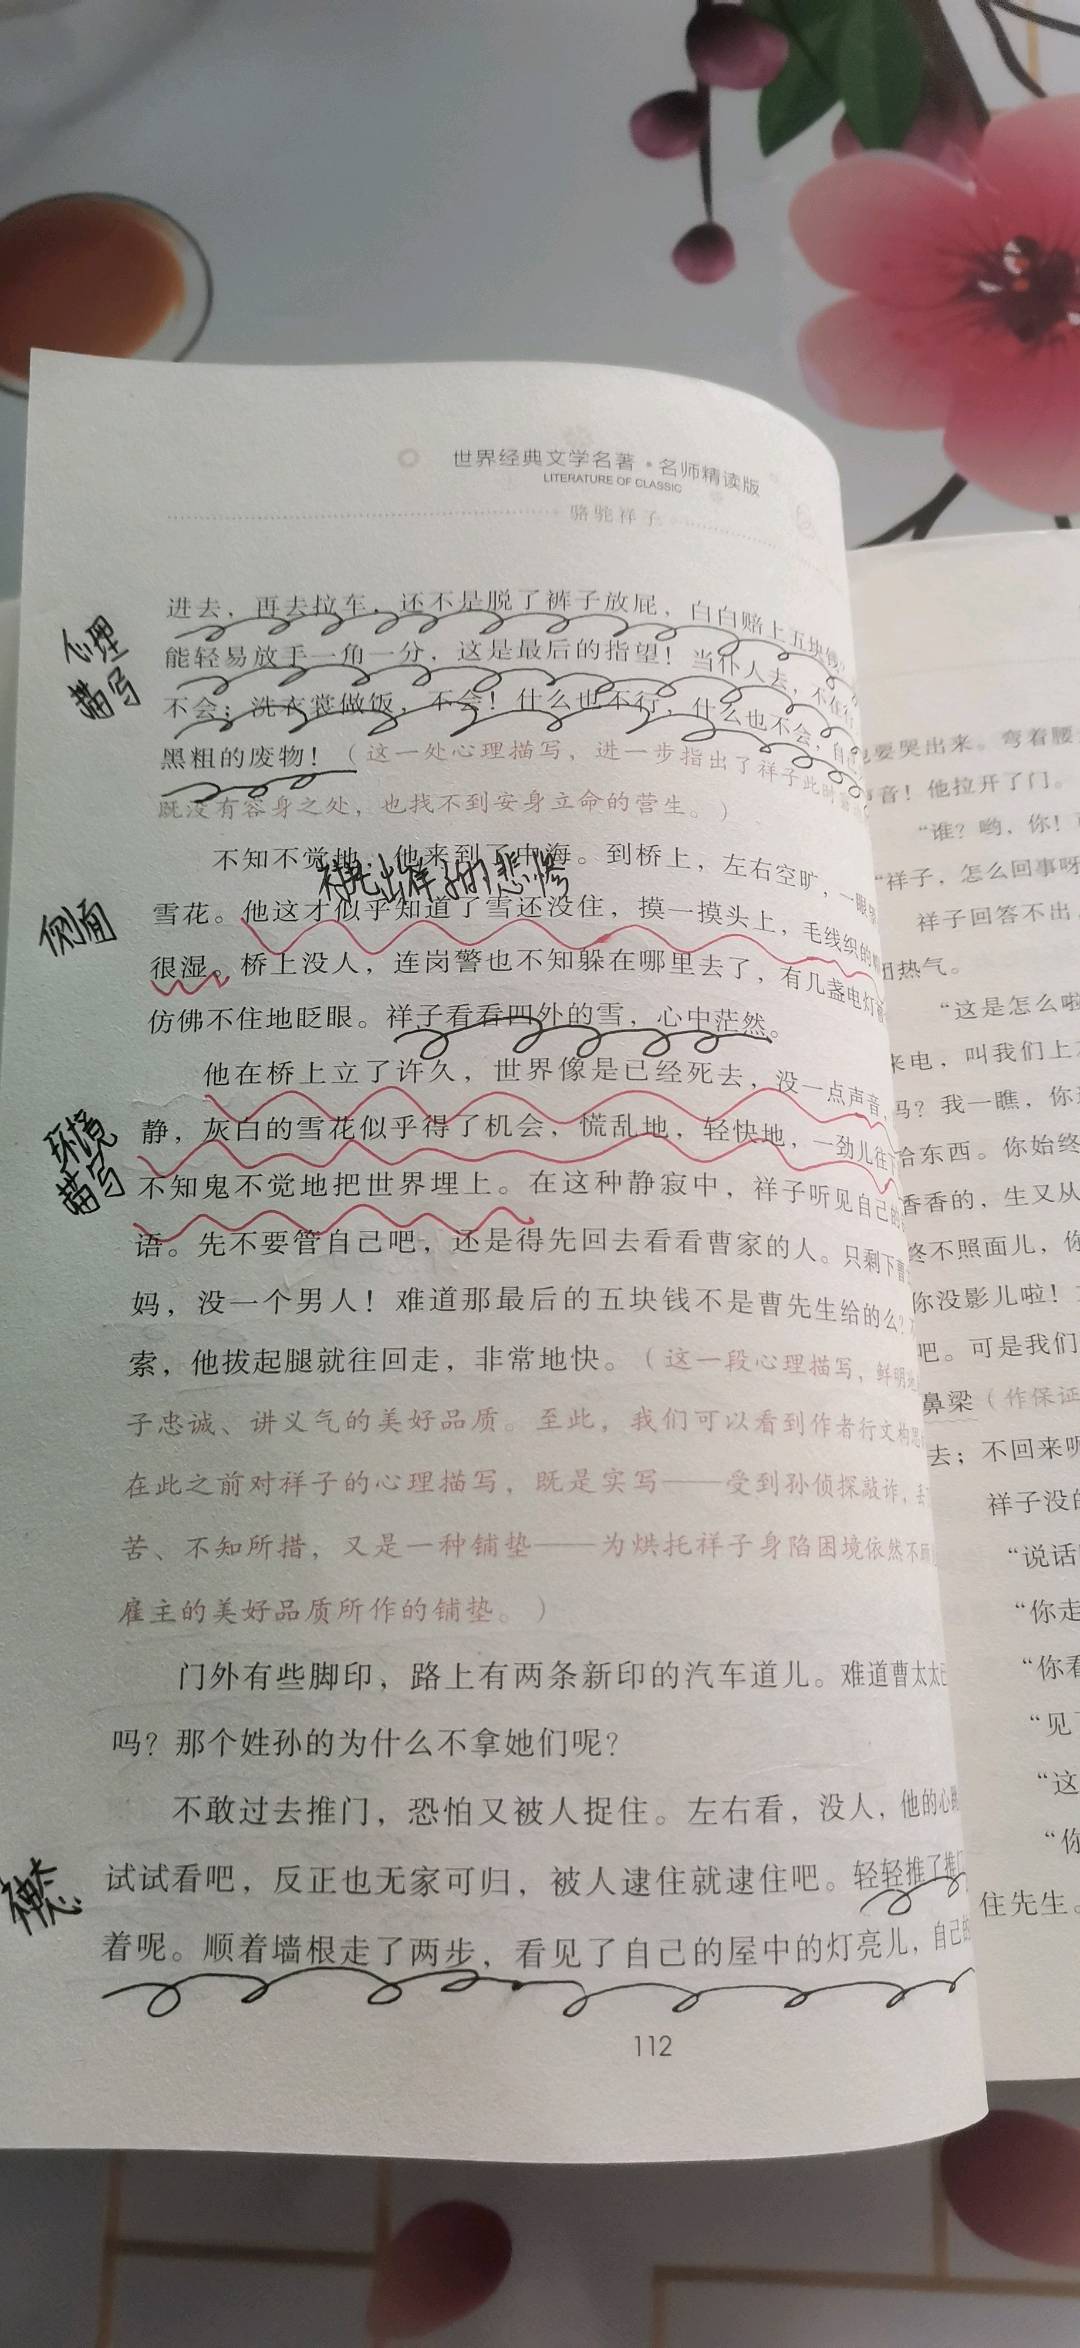 世界经典文学名著·名师精读版
LITERATURE OF CLASSIC
骆驼祥子
进去，再去拉车，还不是脱了裤子放屁，白白赔上五块钱？
心理
描写
能轻易放手一角一分，这是最后的指望！当仆人去，不在行
不会；洗衣裳做饭，不会！什么也不行，什么也不会，自己
黑粗的废物！（这一处心理描写，进一步指出了祥子此时
既没有容身之处，也找不到安身立命的营生。）
不知不觉地，他来到了中海。到桥上，左右空旷，一眼
衬托出祥子的悲惨
侧面
雪花。他这才似乎知道了雪还没住，摸一摸头上，毛线织的
很湿。桥上没人，连岗警也不知躲在哪里去了，有几盏电灯
仿佛不住地眨眼。祥子看看四外的雪，心中茫然。
他在桥上立了许久，世界像是已经死去，没一点声音，
环境
描写
静，灰白的雪花似乎得了机会，慌乱地，轻快地，一劲儿往
不知鬼不觉地把世界埋上。在这种静寂中，祥子听见自己的
语。先不要管自己吧，还是得先回去看看曹家的人。只剩下曹
妈，没一个男人！难道那最后的五块钱不是曹先生给的么？
索，他拔起腿就往回走，非常地快。（这一段心理描写，鲜明
子忠诚、讲义气的美好品质。至此，我们可以看到作者行文构思
在此之前对祥子的心理描写，既是实写——受到孙侦探敲诈，
苦、不知所措，又是一种铺垫——为烘托祥子身陷困境依然不顾
雇主的美好品质所作的铺垫。）
门外有些脚印，路上有两条新印的汽车道儿。难道曹太太已
吗？那个姓孙的为什么不拿她们呢？
不敢过去推门，恐怕又被人捉住。左右看，没人，他的心
神态
试试看吧，反正也无家可归，被人逮住就逮住吧。轻轻推了推
着呢。顺着墙根走了两步，看见了自己的屋中的灯亮儿，自己的
112
要哭出来。弯着腰
声音！他拉开了门。
“谁？哟，你！
“祥子，怎么回事呀
祥子回答不出
热气。
“这是怎么啦
来电，叫我们上
吗？我一瞧，你
哈东西。你始终
香香的，生又从
终不照面儿，你
你没影儿啦！
吧。可是我们
鼻梁（作保证
去；不回来呢
祥子没的
“说话
“你走
“你看
“见
“这
“你
住先生。